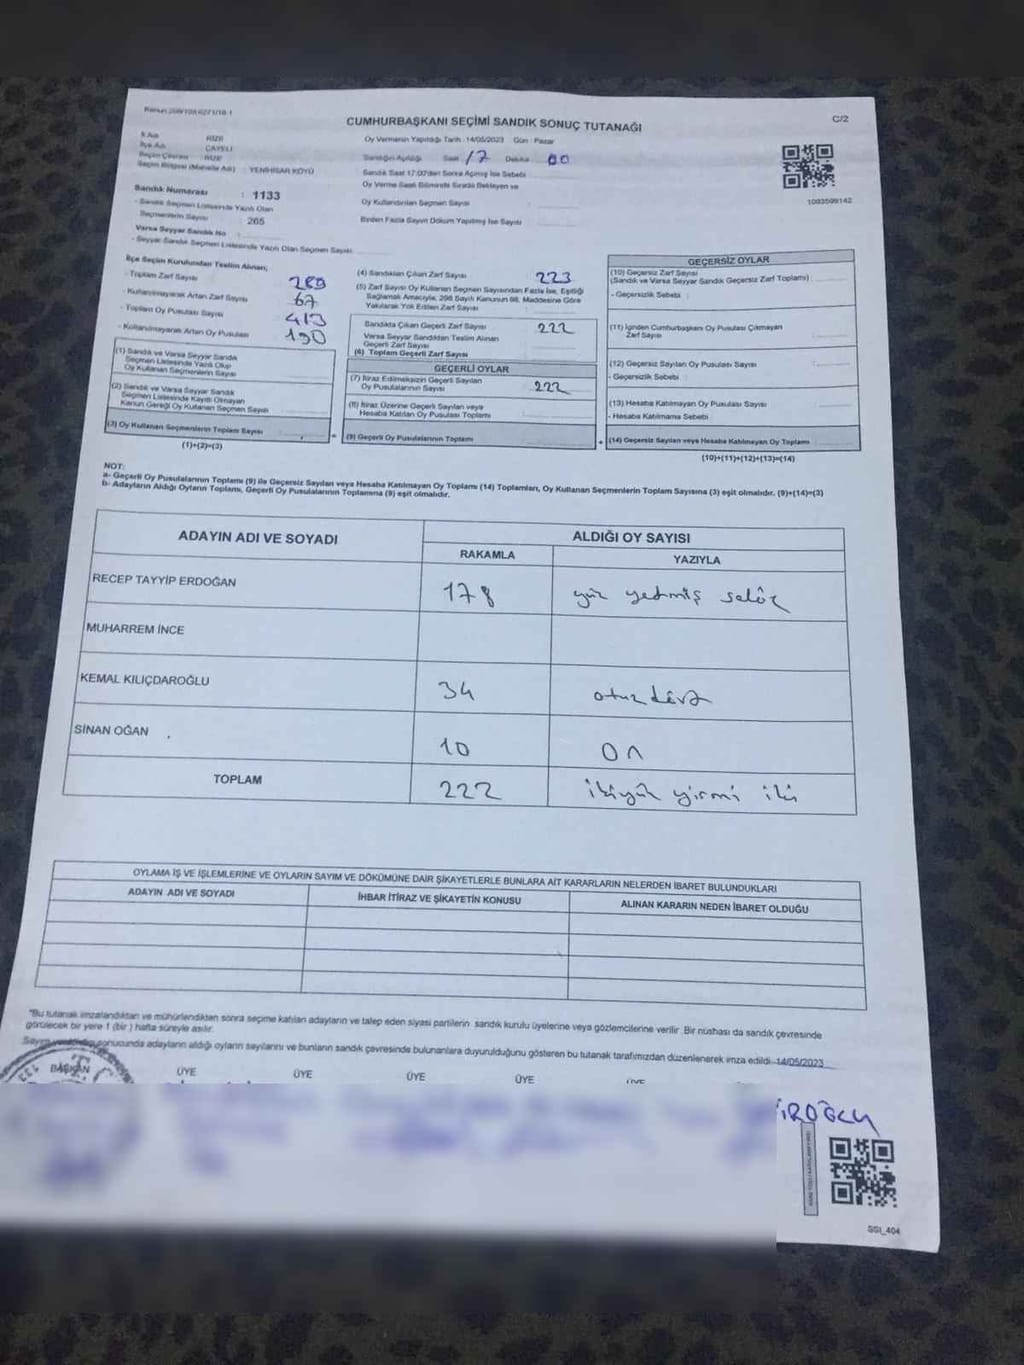 CUMHURBAŞKANI SEÇİMİ SANDIK SONUÇ TUTANAĞI
C/2
İl Adı RİZE
İlçe Adı ÇAYELİ
Seçim Çevresi RİZE
Seçim Bölgesi (Mahalle Adı) : YENİHİSAR KÖYÜ
Oy Vermenin Yapıldığı Tarih : 14/05/2023 Gün : Pazar
Sandığın Açıldığı Saat 17 Dakika 00
Sandık Saat 17:00'den Sonra Açılmış İse Sebebi
Oy Verme Saati Bitiminde Sırada Bekleyen ve
Oy Kullandırılan Seçmen Sayısı
Birden Fazla Sayım Döküm Yapılmış İse Sayısı
1003599142
Sandık Numarası : 1133
- Sandık Seçmen Listesinde Yazılı Olan
Seçmenlerin Sayısı : 265
Varsa Seyyar Sandık No
- Seyyar Sandık Seçmen Listesinde Yazılı Olan Seçmen Sayısı
İlçe Seçim Kurulundan Teslim Alınan;
- Toplam Zarf Sayısı 289
- Kullanılmayarak Artan Zarf Sayısı 67
- Toplam Oy Pusulası Sayısı 413
- Kullanılmayarak Artan Oy Pusulası 190
(1) Sandık ve Varsa Seyyar Sandık
Seçmen Listesinde Yazılı Olup
Oy Kullanan Seçmenlerin Sayısı
(2) Sandık ve Varsa Seyyar Sandık
Seçmen Listesinde Kayıtlı Olmayan
Kanun Gereği Oy Kullanan Seçmen Sayısı
(3) Oy Kullanan Seçmenlerin Toplam Sayısı
(1)+(2)=(3)
(4) Sandıktan Çıkan Zarf Sayısı 223
(5) Zarf Sayısı Oy Kullanan Seçmen Sayısından Fazla İse, Eşitliği
Sağlamak Amacıyla, 298 Sayılı Kanunun 98. Maddesine Göre
Yakılarak Yok Edilen Zarf Sayısı
Sandıkta Çıkan Geçerli Zarf Sayısı 222
Varsa Seyyar Sandıktan Teslim Alınan
Geçerli Zarf Sayısı
(6) Toplam Geçerli Zarf Sayısı
GEÇERLİ OYLAR
(7) İtiraz Edilmeksizin Geçerli Sayılan
Oy Pusulalarının Sayısı 222
(8) İtiraz Üzerine Geçerli Sayılan veya
Hesaba Katılan Oy Pusulası Toplamı
(9) Geçerli Oy Pusulalarının Toplamı
GEÇERSİZ OYLAR
(10) Geçersiz Zarf Sayısı
(Sandık ve Varsa Seyyar Sandık Geçersiz Zarf Toplamı)
- Geçersizlik Sebebi :
(11) İçinden Cumhurbaşkanı Oy Pusulası Çıkmayan
Zarf Sayısı
(12) Geçersiz Sayılan Oy Pusulası Sayısı
- Geçersizlik Sebebi :
(13) Hesaba Katılmayan Oy Pusulası Sayısı
- Hesaba Katılmama Sebebi
(14) Geçersiz Sayılan veya Hesaba Katılmayan Oy Toplamı
(10)+(11)+(12)+(13)=(14)
NOT:
a- Geçerli Oy Pusulalarının Toplamı (9) ile Geçersiz Sayılan veya Hesaba Katılmayan Oy Toplamı (14) Toplamları, Oy Kullanan Seçmenlerin Toplam Sayısına (3) eşit olmalıdır. (9)+(14)=(3)
b- Adayların Aldığı Oyların Toplamı, Geçerli Oy Pusulalarının Toplamına (9) eşit olmalıdır.
ADAYIN ADI VE SOYADI
ALDIĞI OY SAYISI
RAKAMLA YAZIYLA
RECEP TAYYİP ERDOĞAN 178 yüz yetmiş sekiz
MUHARREM İNCE
KEMAL KILIÇDAROĞLU 34 otuz dört
SİNAN OĞAN 10 on
TOPLAM 222 ikiyüz yirmi iki
OYLAMA İŞ VE İŞLEMLERİNE VE OYLARIN SAYIM VE DÖKÜMÜNE DAİR ŞİKAYETLERLE BUNLARA AİT KARARLARIN NELERDEN İBARET BULUNDUKLARI
ADAYIN ADI VE SOYADI İHBAR İTİRAZ VE ŞİKAYETİN KONUSU ALINAN KARARIN NEDEN İBARET OLDUĞU
"Bu tutanak imzalandıktan ve mühürlendikten sonra seçime katılan adayların ve talep eden siyasi partilerin sandık kurulu üyelerine veya gözlemcilerine verilir. Bir nüshası da sandık çevresinde
görülecek bir yere 1 (bir) hafta süreyle asılır.
sonucunda adayların aldığı oyların sayılarını ve bunların sandık çevresinde bulunanlara duyurulduğunu gösteren bu tutanak tarafımızdan düzenlenerek imza edildi. 14/05/2023
BAŞKAN ÜYE ÜYE ÜYE ÜYE ÜYE
SSI_404